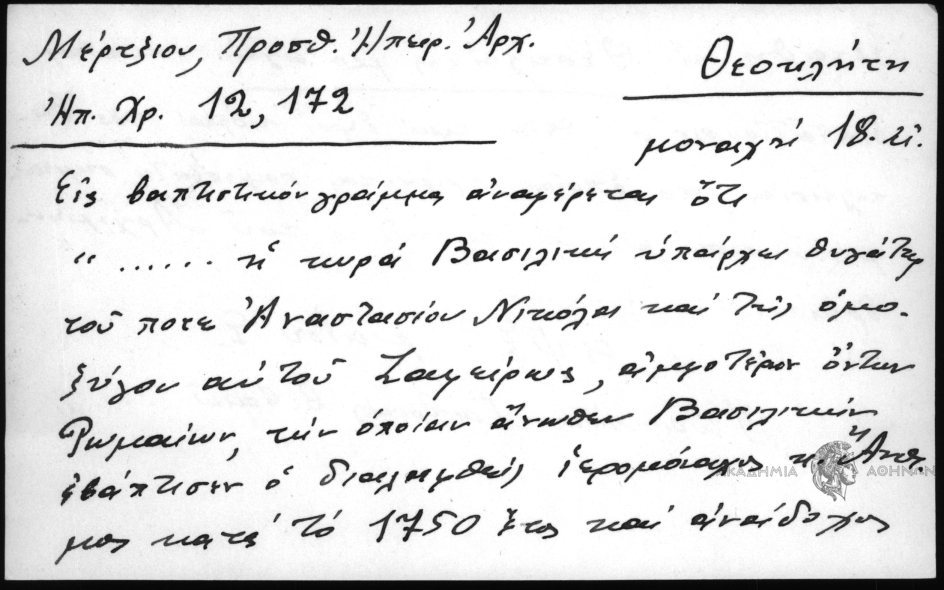 Μέρτζιου, Προσθ. Ἠπειρ. Ἀρχ.
Ἠπ. Χρ. 12, 172
Θεοκλήτη
μοναχή 18. αἰ.
Εἰς βαπτιστικόν γράμμα ἀναφέρεται ὅτι
" ...... ἡ κυρά Βασιλική ὑπάρχει θυγάτηρ
τοῦ ποτε Ἀναστασίου Νικόλα καί τῆς ὁμο-
ζύγου αὐτοῦ Ζαφείρως, ἀμφοτέρων ὄντων
Ρωμαίων, τήν ὁποίαν ἄνωθεν Βασιλικήν
ἐβάπτισεν ὁ διαληφθείς ἱερομόναχος κ. Ἄνθι-
μος κατά τό 1750 ἔτος καί ἀνάδοχος
ΑΚΑΔΗΜΙΑ ΑΘΗΝΩΝ